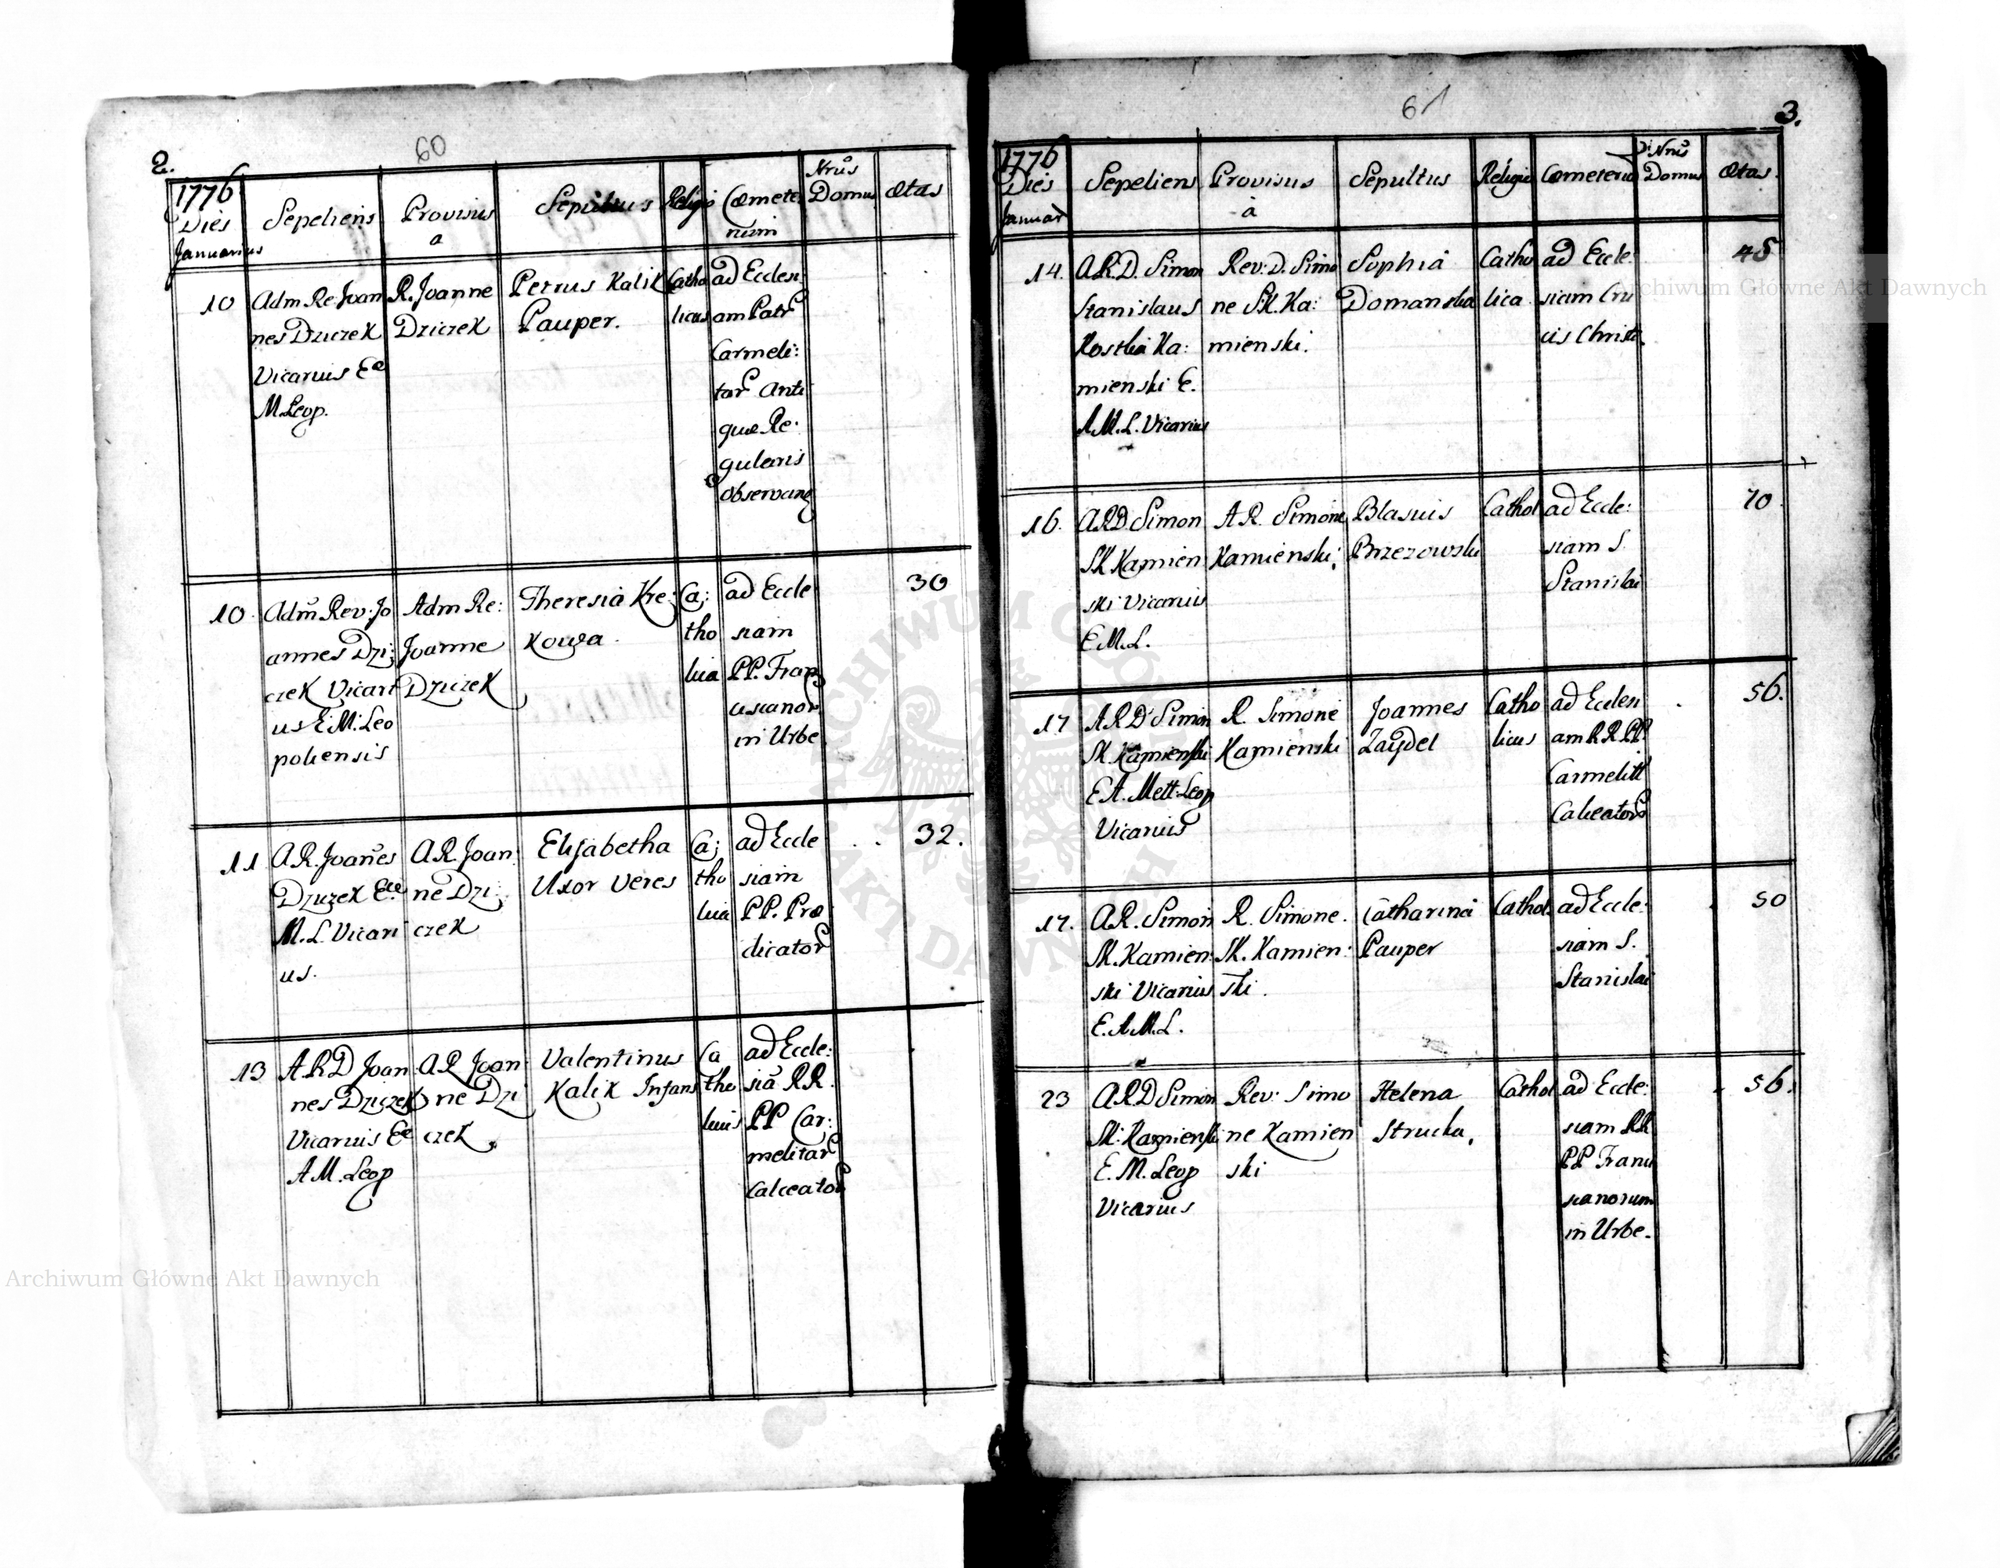 2.
60
1776
Dies
Januarius
Sepeliens
Provisus
a
Sepultus
Religio
Cœmete
rium
Nrus
Domus
Ætas
10
Adm Re Joan
nes Dziczek
Vicarius Ee
M. Leop.
R. Joanne
Dziczek
Petrus Kalik
Pauper.
Catho
licus
ad Ecclesi
am Patr
Carmeli:
tar Anti
quæ Re:
gularis
Observanz
10
Adm Rev: Jo
annes Dzi:
czek Vicari
us E: M: Leo
poliensis
Adm Re:
Joanne
Dziczek
Theresia Kre:
Kowa.
Ca:
tho
lica
ad Eccle
siam
PP. Fran
ciscanor
in Urbe
30
11
A.R. Joanes
Dziczek Ecc
M. L. Vicari
us.
A.R. Joan:
ne Dzi:
czek
Elisabetha
Uxor Veres
Ca:
tho
lica
ad Eccle
siam
PP. Præ
dicator
32.
13
A R D Joan
nes Dziczek
Vicarius Ee
A M. Leop
A R Joan
ne Dzi
czek.
Valentinus
Kalik Infans
Ca
tho
licus
ad Eccle:
sia RR.
PP Car:
melitar
Calceator
3.
61
1776
Dies
Januar
Sepeliens
Provisus
à
Sepultus
Religio
Cœmeteriu
Nrus
Domus
Ætas
14.
A.R.D. Simon
Stanislaus
Kostka Ka:
mienski E.
A.M.L. Vicarius
Rev: D. Simo
ne SK. Ka:
mienski.
Sophia
Domanska
Catho
lica
ad Eccle:
siam Cru
cis Christi.
45
16.
A R D. Simon
SK Kamien
ski Vicarius
E. M. L.
A R. Simone
Kamienski.
Blasius
Brzezowski
Cathol
ad Eccle:
siam S.
Stanislai
70
17
A R D Simon
SK. Kamienski
E A. Mett: Leop
Vicarius
R. Simone
Kamienski
Joannes
Zaydel
Catho
licus
ad Ecclesi
am R R PP
Carmelitt
Calceators
56.
17.
A R. Simon
SK. Kamien:
ski Vicarius
E. A.M.L.
R. Simone.
SK. Kamien:
ski.
Catharina
Pauper
Cathol.
ad Eccle:
siam S.
Stanislai
50
23
A R D Simon
SK: Kamienski
E. M. Leop
Vicarius
Rev: Simo
ne Kamien
ski
Helena
Strucka,
Cathol
ad Eccle:
siam RR
PP Franci
scanorum
in Urbe.
56.
Archiwum Główne Akt Dawnych
ARCHIWUM GŁÓWNE AKT DAWNYCH
Archiwum Główne Akt Dawnych